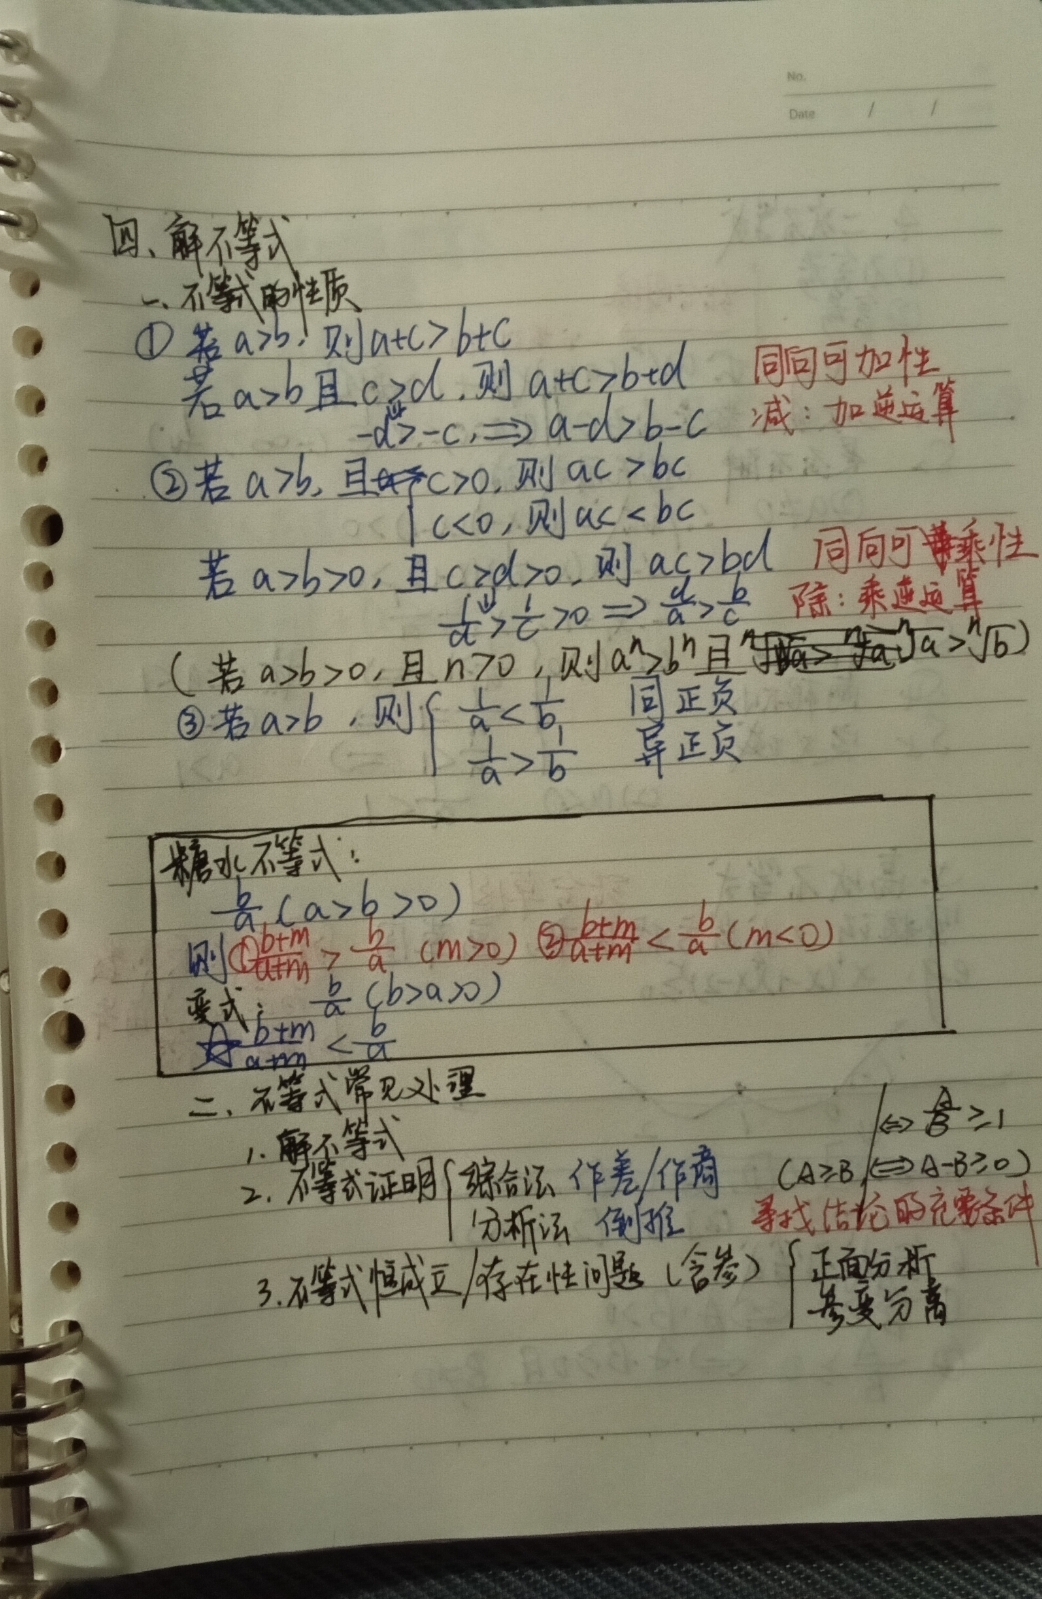 No.
Date / /
四、解不等式
一、不等式的性质
① 若a>b，则a+c>b+c
若a>b且c>d，则a+c>b+d 同向可加性
-d>-c，⇒a-d>b-c 减：加逆运算
②若a>b，且c>0，则ac>bc
c<0，则ac<bc
若a>b>0，且c>d>0，则ac>bd 同向可乘性
1/d>1/c>0⇒a/d>b/c 除：乘逆运算
(若a>b>0，且n>0，则aⁿ>bⁿ且ⁿ√a>ⁿ√b)
③若a>b，则{1/a<1/b 同正负
1/a>1/b 异正负
糖水不等式：
b/a(a>b>0)
则①(b+m)/(a+m)>b/a(m>0) ②(b+m)/(a+m)<b/a(m<0)
变式：b/a(b>a>0)
☆(b+m)/(a+m)<b/a
二、不等式常见处理
1.解不等式 ⇔A/B≥1
2.不等式证明{综合法 作差/作商 (A≥B⇔A-B≥0)
分析法 倒推 寻找结论的充要条件
3.不等式恒成立/存在性问题(含参){正面分析
参变分离